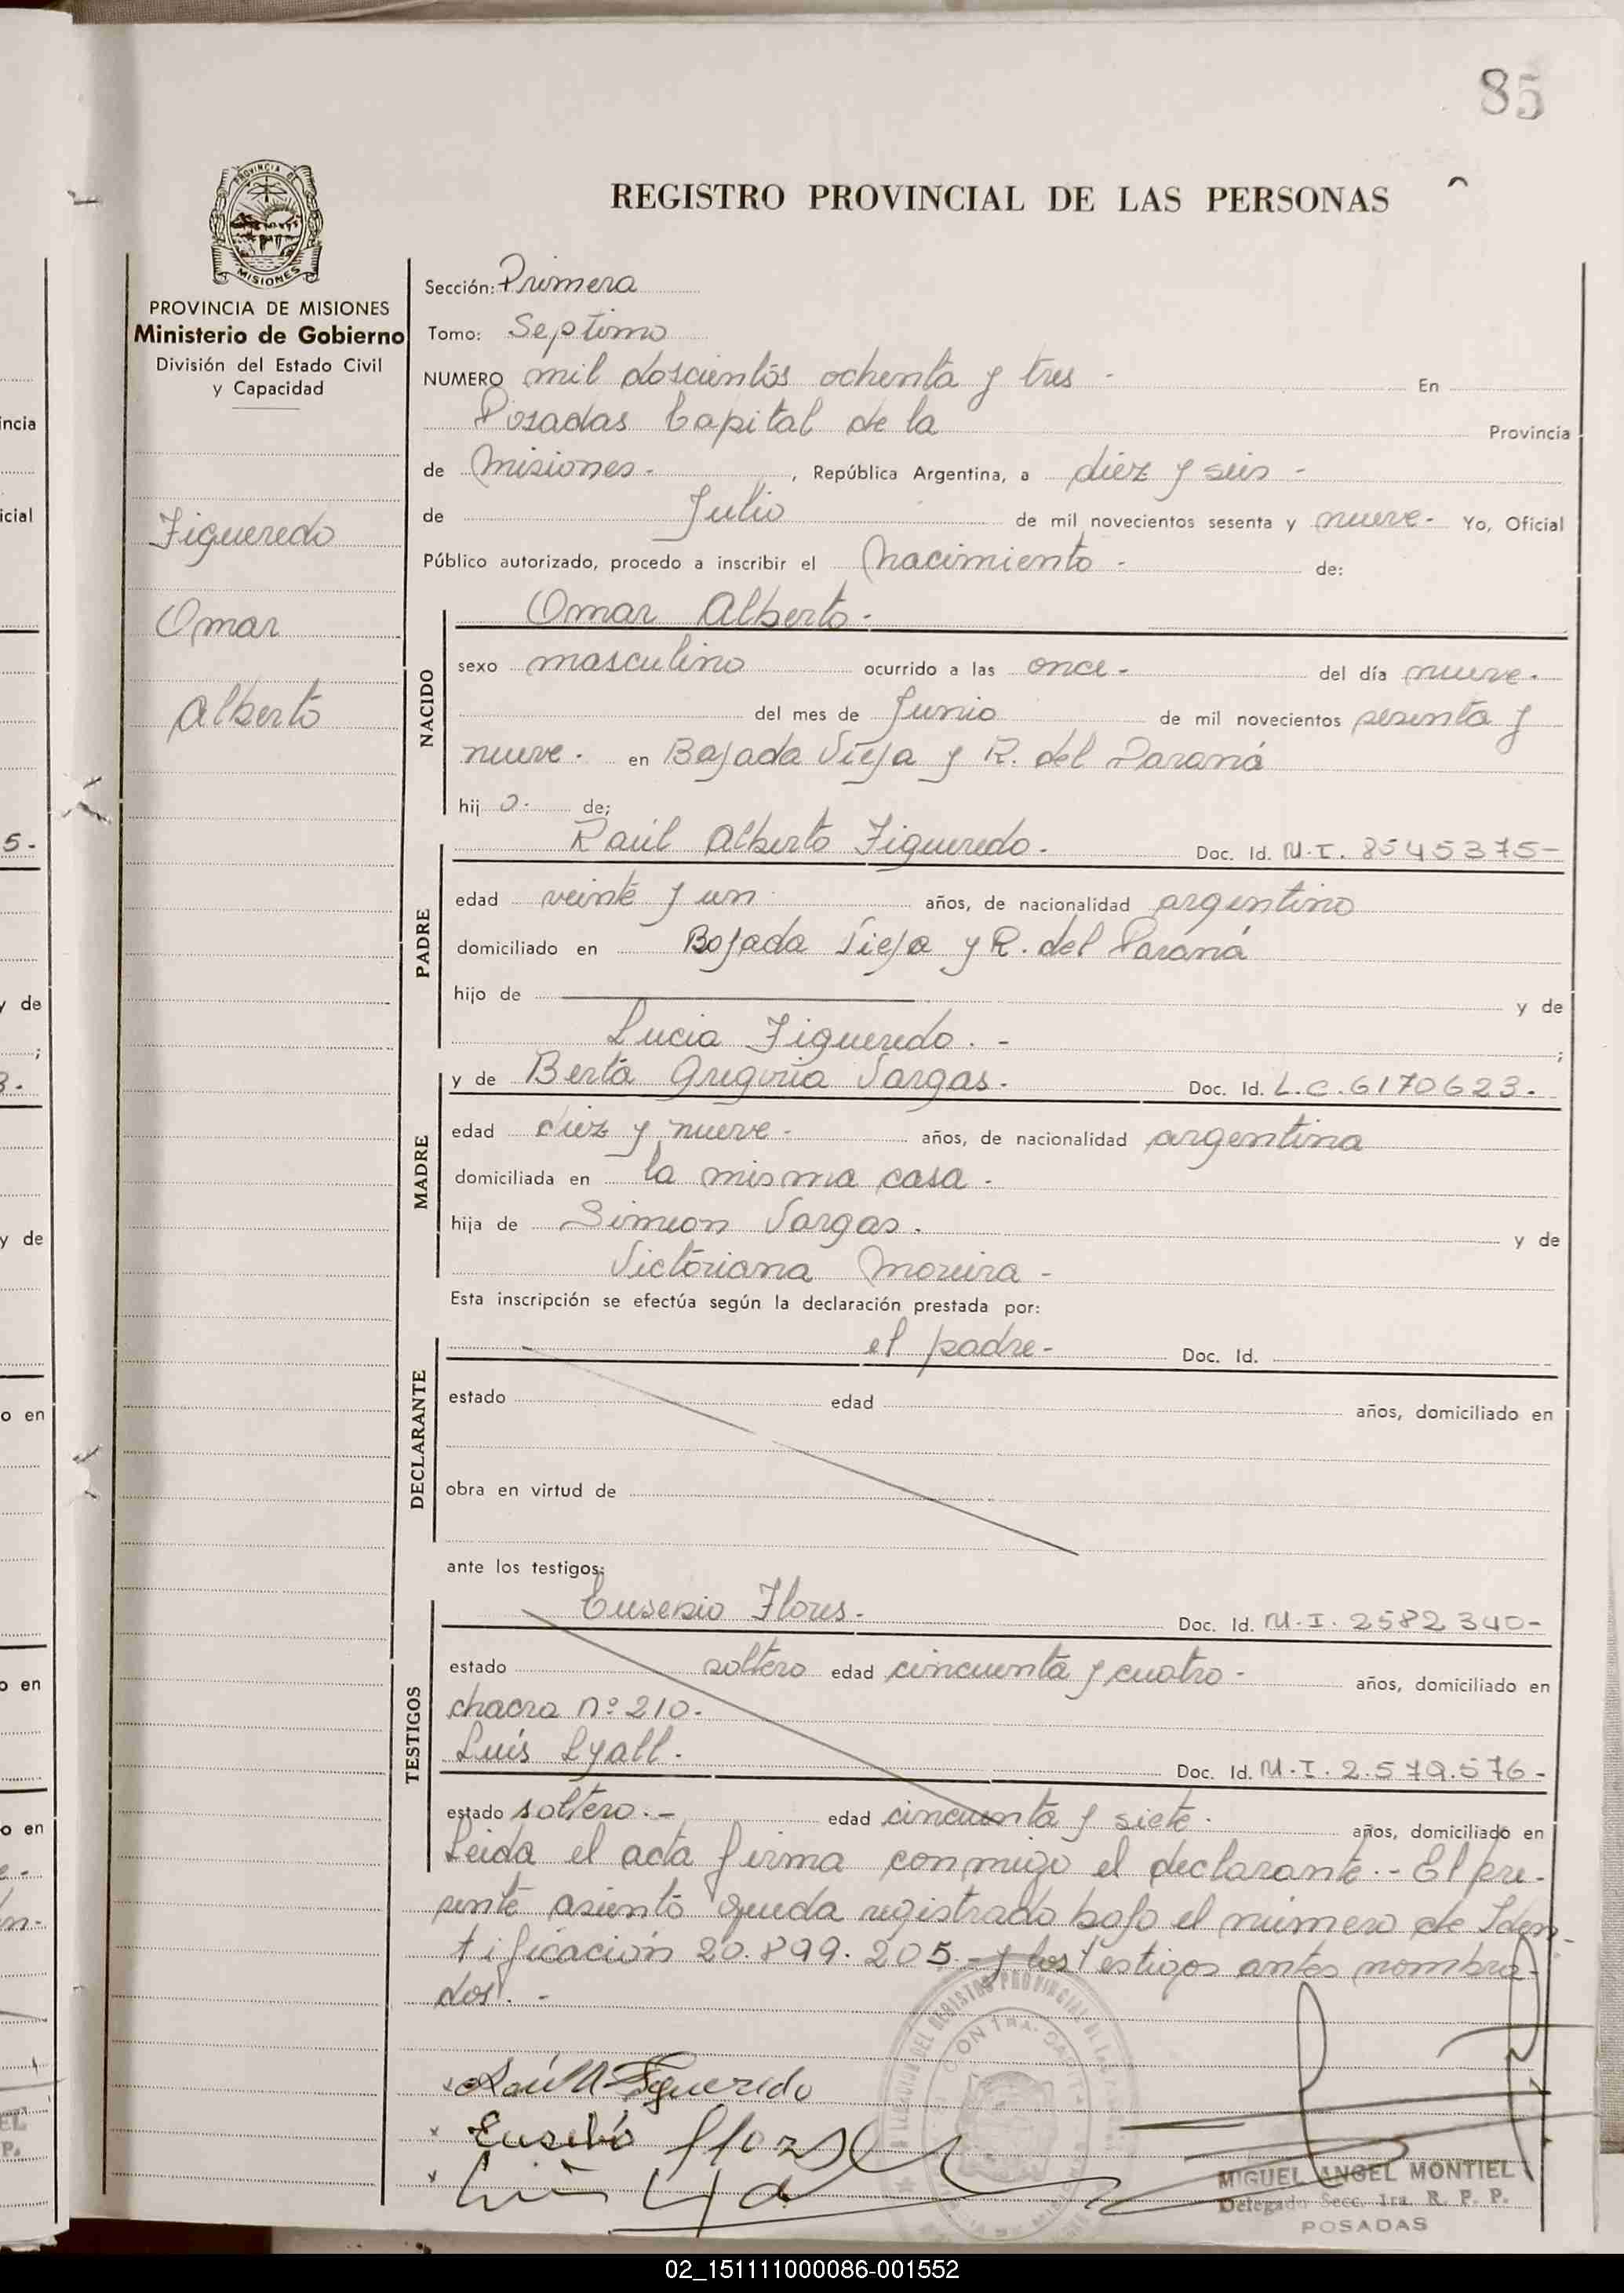 85
REGISTRO PROVINCIAL DE LAS PERSONAS
PROVINCIA DE
MISIONES
PROVINCIA DE MISIONES
Ministerio de Gobierno
División del Estado Civil
y Capacidad
Figueredo
Omar
Alberto
Sección: Primera
Tomo: Septimo
NUMERO mil doscientos ochenta y tres - En
Posadas Capital de la Provincia
de Misiones. , República Argentina, a diez y seis -
de Julio de mil novecientos sesenta y nueve. Yo, Oficial
Público autorizado, procedo a inscribir el Nacimiento - de:
NACIDO
Omar Alberto.
sexo masculino ocurrido a las once - del día nueve.
del mes de Junio de mil novecientos sesenta y
nueve. en Bajada Vieja y R. del Paraná
hij o. de;
PADRE
Raúl Alberto Figueredo. Doc. Id. M.I. 8545375-
edad veinte y un años, de nacionalidad argentino
domiciliado en Bajada Vieja y R. del Paraná
hijo de y de
Lucia Figueredo. - ;
MADRE
y de Berta Gregoria Vargas. Doc. Id. L.C. 6170623.
edad diez y nueve - años, de nacionalidad argentina
domiciliada en la misma casa.
hija de Simeon Vargas. y de
Victoriana Moreira -
Esta inscripción se efectúa según la declaración prestada por:
DECLARANTE
el padre- Doc. Id.
estado edad años, domiciliado en
obra en virtud de
ante los testigos:
TESTIGOS
Eusebio Flores. Doc. Id. M.I. 2582340-
estado soltero edad cincuenta y cuatro - años, domiciliado en
chacra nº 210.
Luis Lyall. Doc. Id. M.I. 2.579.576-
estado soltero. - edad cincuenta y siete. años, domiciliado en
Leida el acta firma conmigo el declarante. - El pre-
sente asiento queda registrado bajo el número de Iden-
tificación 20.899.205 - y los testigos antes nombra-
dos. -
Raúl A Figueredo
Eusebio Flores
MIGUEL ANGEL MONTIEL
Delegado Secc. 1ra. R. P. P.
POSADAS
02_151111000086-001552